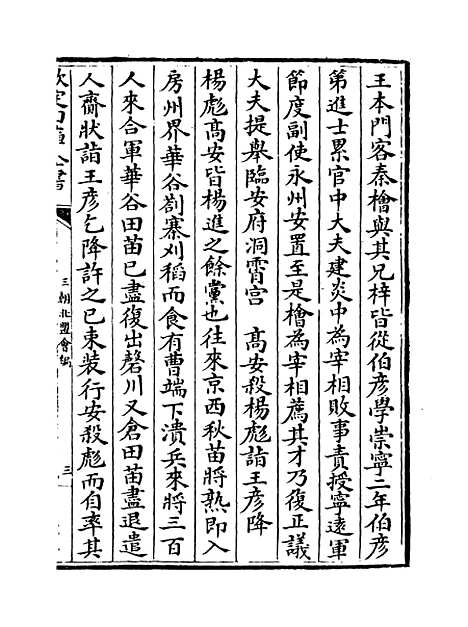 王本門客秦檜與其兄梓皆從伯彦學崇寧二年伯彦
第進士累官中大夫建炎中為宰相敗事責授寧逺軍
節度副使永州安置至是檜為宰相薦其才乃復正議
大夫提舉臨安府洞霄宫　髙安殺楊彪詣王彦降
楊彪髙安皆楊進之餘黨也往來京西秋苗將熟即入
房州界華谷劄寨刈稻而食有曹端下潰兵來將三百
人來合軍華谷田苗已盡復出磬川又倉田苗盡退遣
人齎狀詣王彦乞降許之已束装行安殺彪而自率其
欽定四庫全書
三朝北盟會編